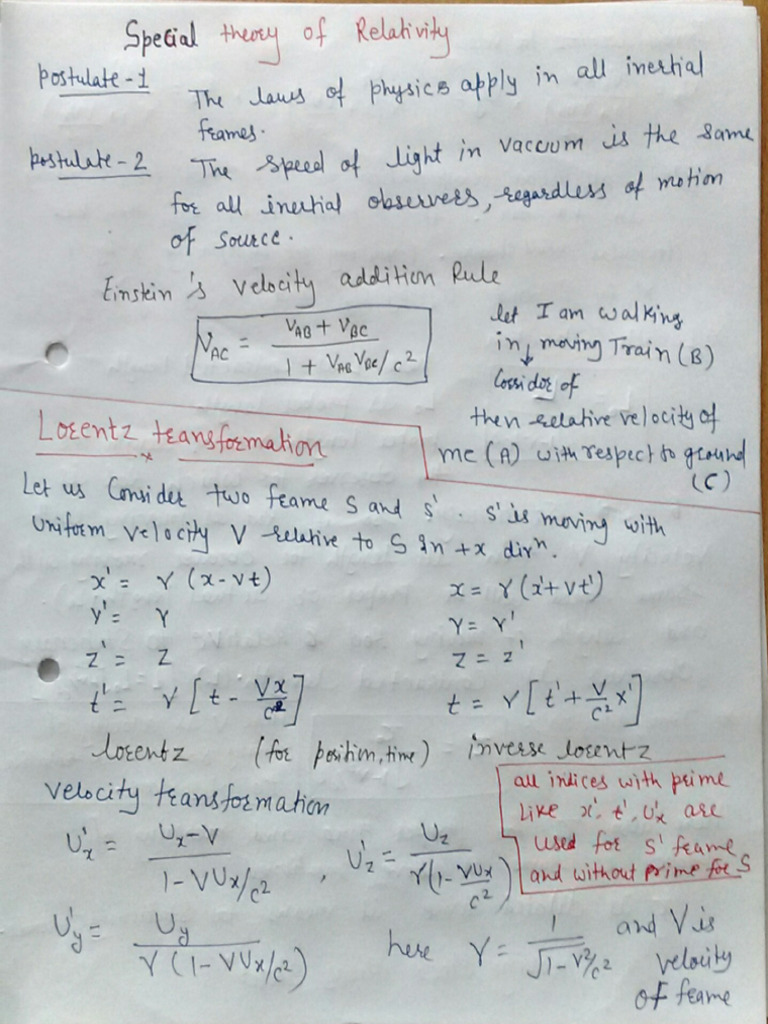 Special theory of Relativity
Postulate-1
The laws of physics apply in all inertial
frames.
Postulate-2 The speed of light in vaccum is the same
for all inertial observers, regardless of motion
of source.
Einstein's velocity addition Rule
V_AC = (V_AB + V_BC) / (1 + V_AB V_BC/c²)
let I am walking
in moving Train (B)
↓ Corridor of
then relative velocity of
me (A) with respect to ground
(C)
Lorentz transformation
Let us Consider two frame S and S'. S' is moving with
Uniform velocity V relative to S in +x dirⁿ.
x' = γ (x - vt) x = γ (x' + vt')
y' = y y = y'
z' = z z = z'
t' = γ [t - Vx/c²] t = γ [t' + V/c² x']
lorentz (for position, time) inverse lorentz
velocity transformation
all indices with prime
Like x', t', U'x are
used for S' frame
and without prime for S
U'x = (Ux - V) / (1 - VUx/c²) , U'z = Uz / γ(1 - VUx/c²)
U'y = Uy / γ (1 - VUx/c²) here γ = 1/√(1 - V²/c²) and V is
velocity
of frame